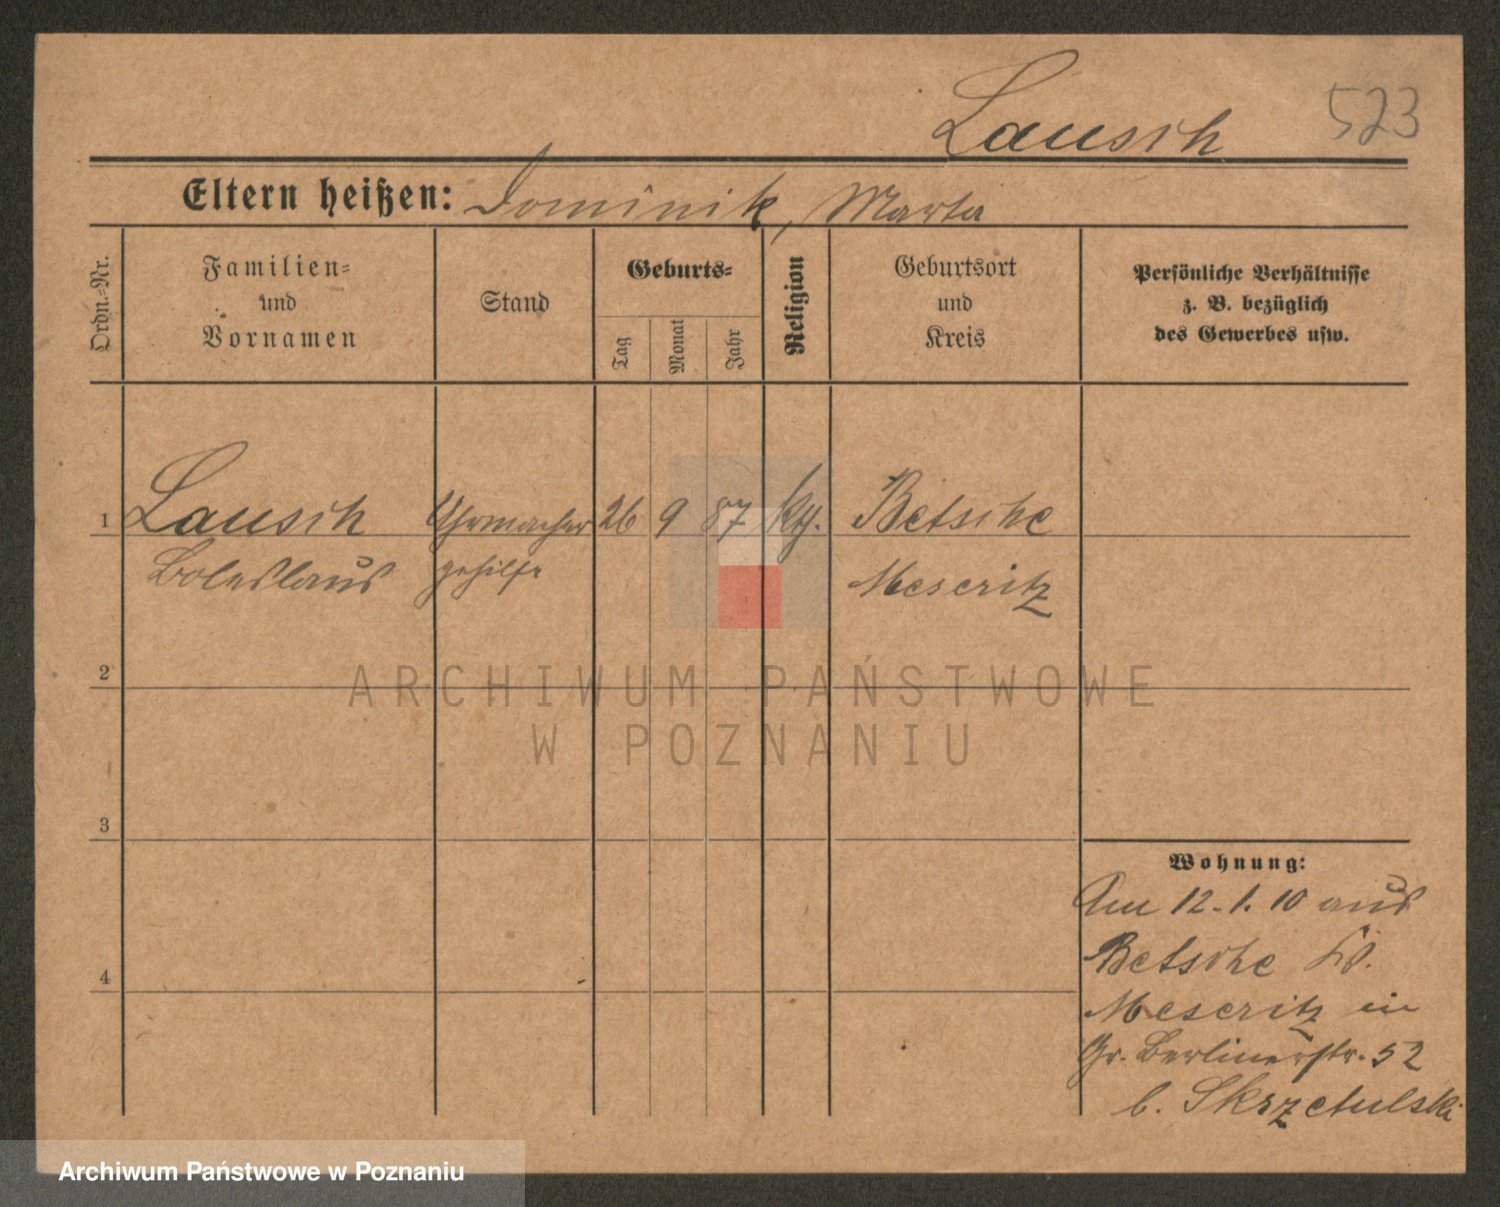 Lausch 523
Eltern heißen: Dominik, Marta
Ordn.-Nr.
Familien-
und
Vornamen
Stand
Geburts-
Tag
Monat
Jahr
Religion
Geburtsort
und
Kreis
Persönliche Verhältnisse
z. B. bezüglich
des Gewerbes usw.
1 Lausch Uhrmacher 26 9 87 kth. Betsche
Boleslaus gehilfe Meseritz
ARCHIWUM PAŃSTWOWE
W POZNANIU
2
3
4
Wohnung:
Am 12.1.10 aus
Betsche Kr.
Meseritz in
Gr. Berlinerstr. 52
b. Skrzetulski
Archiwum Państwowe w Poznaniu